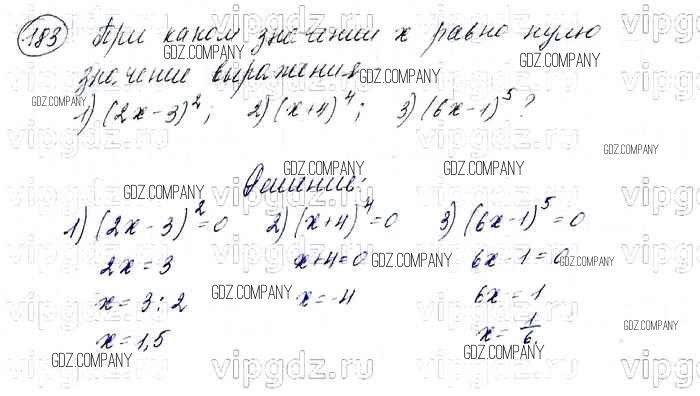 183 При каком значении x равно нулю
значение выражения
1) (2x-3)²; 2) (x+4)⁴; 3) (6x-1)⁵?
Решение:
1) (2x-3)²=0 2) (x+4)⁴=0 3) (6x-1)⁵=0
2x=3 x+4=0 6x-1=0
x=3:2 x=-4 6x=1
x=1,5 x=1/6.
GDZ.COMPANY
vipgdz.ru